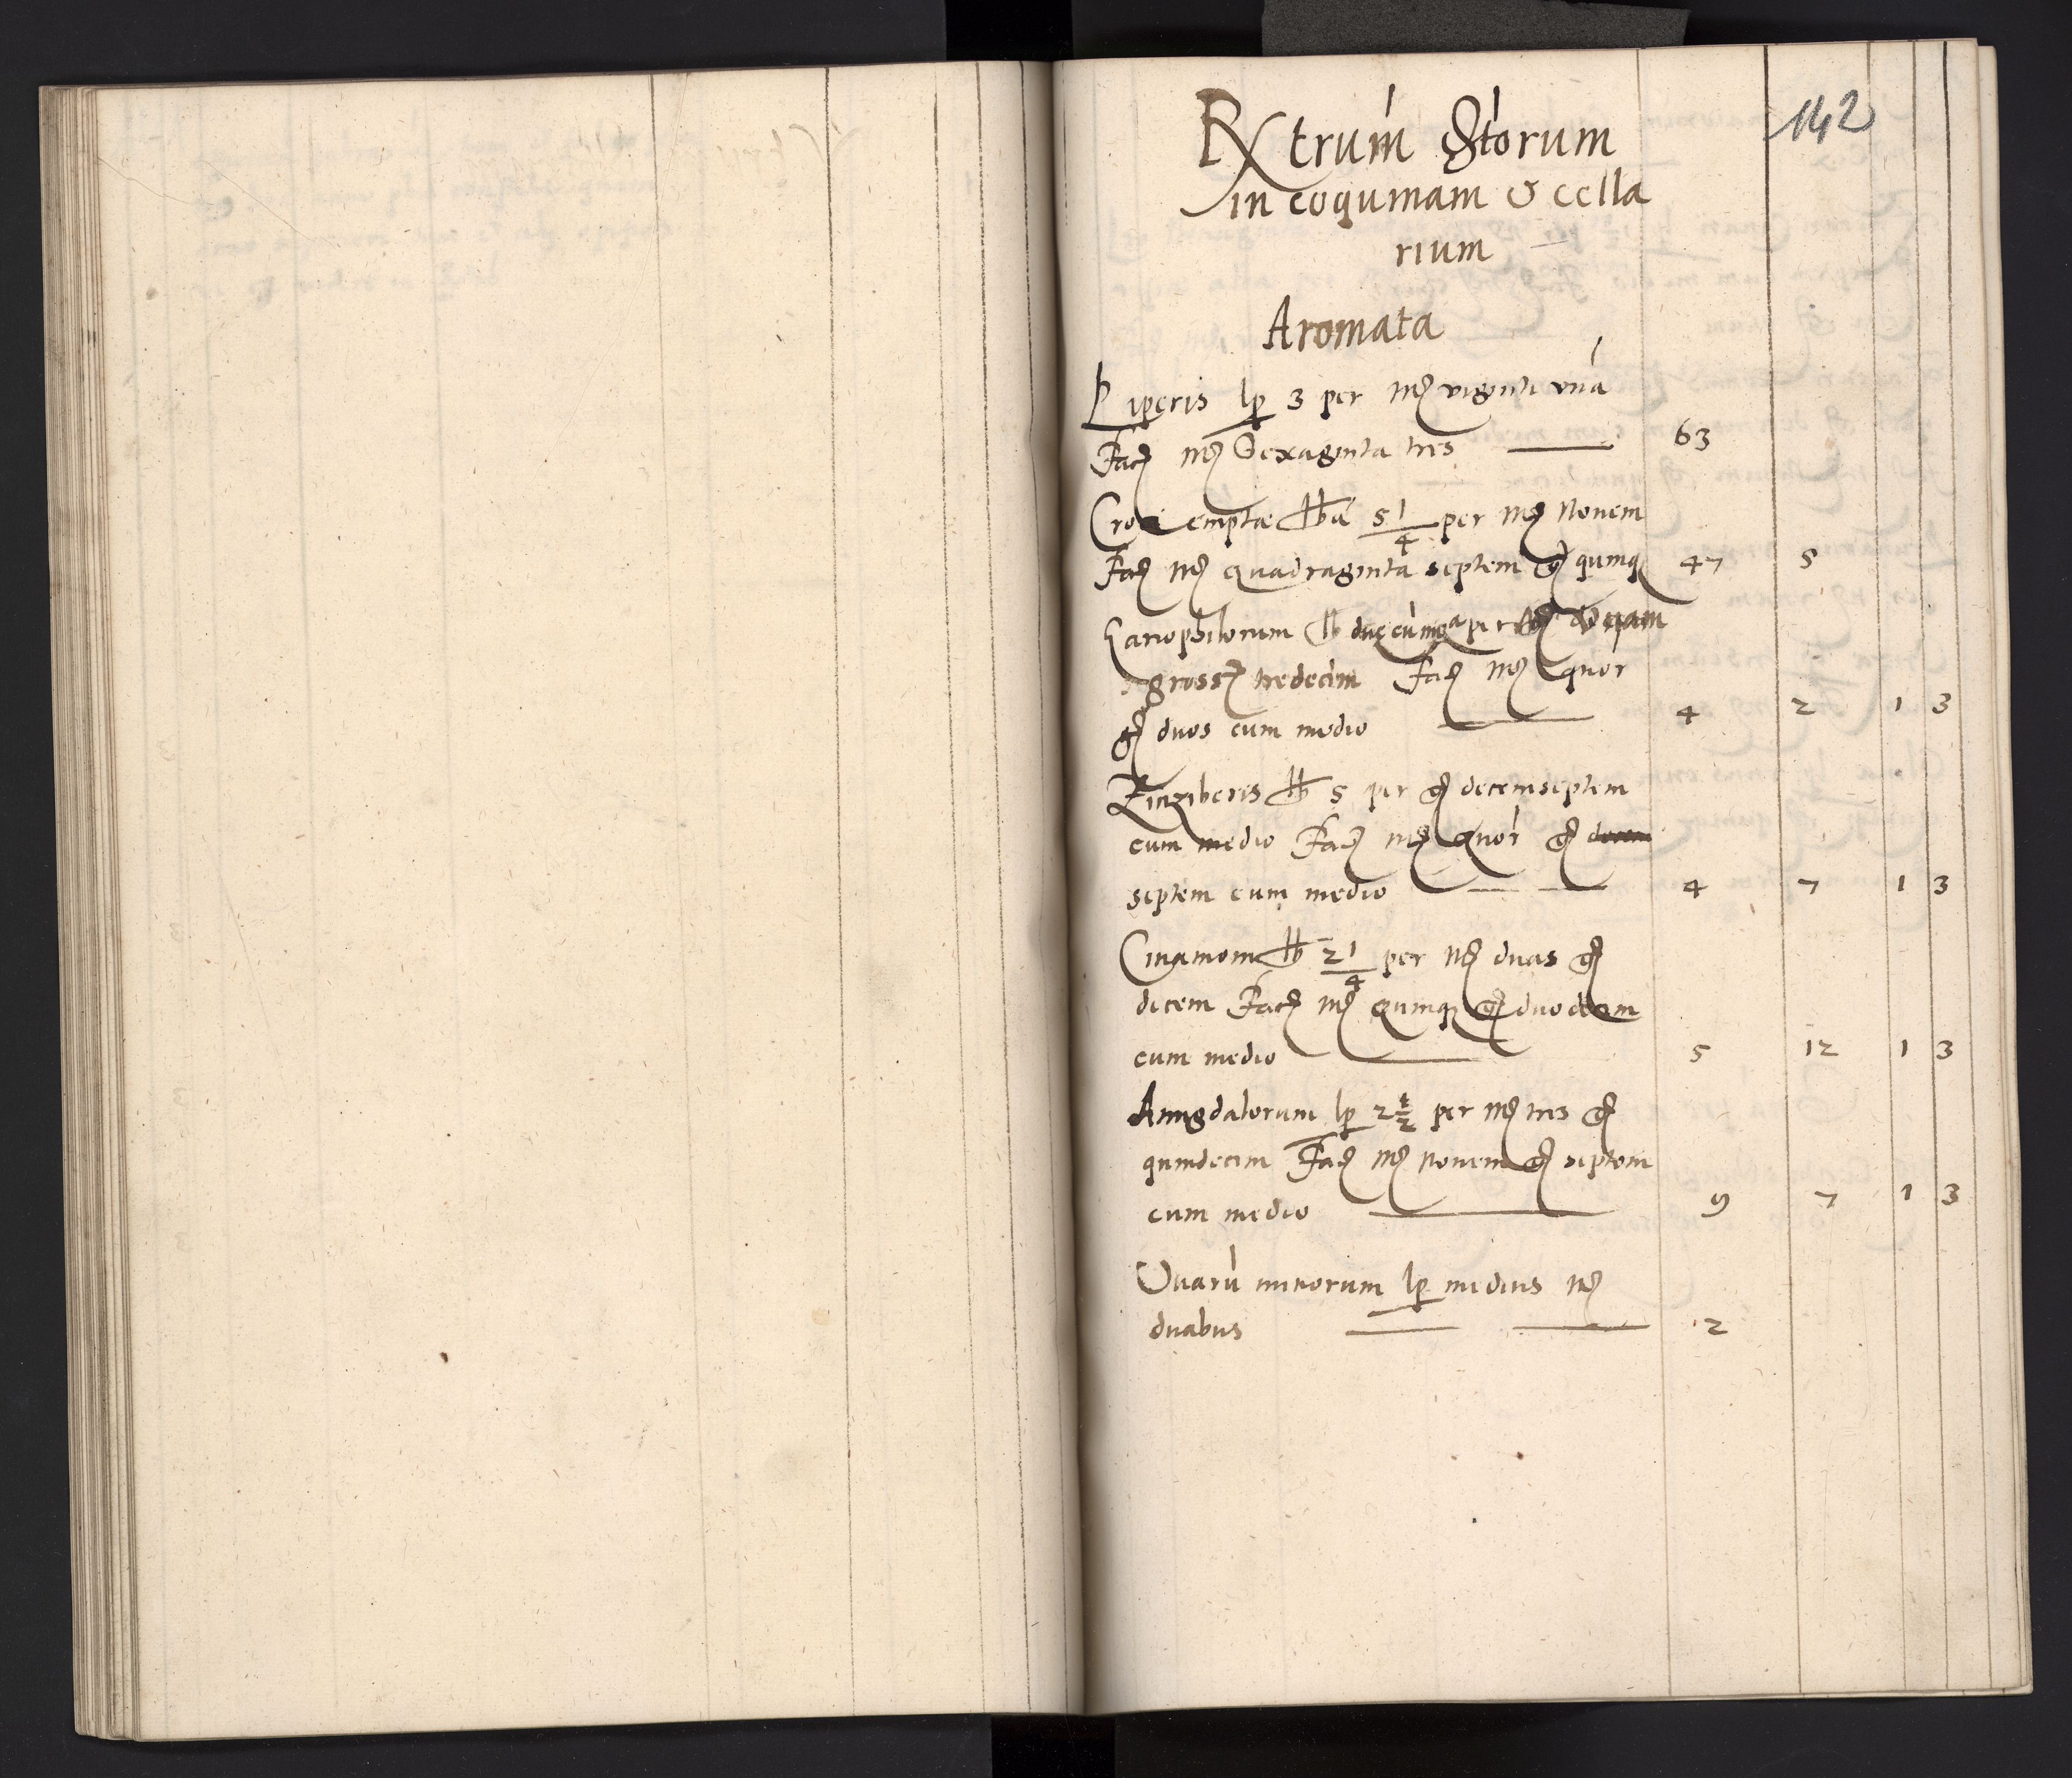 142
Rx trum Storum
in coquinam & cella
rium
Aromata
Piperis lp 3 per mr viginti vna
Fac mr Sexaginta tres 63
Croci emptæ lb a 5 1/4 per mr Novem
Fac mr quadraginta septem gr quinq 47 5
Gariophilorum lb duc cu moa per
gross tredecim Fac mr quor
gr duos cum medio 4 2 1 3
Zinziberis lb 5 per gr decemseptem
cum medio Fac mr quor gr decem
septem cum medio 4 7 1 3
Cinamom lb 2 1/4 per mr duas gr
decem Fac mr quinq gr duodecim
cum medio 5 12 1 3
Amigdalorum lp 2 1/2 per mr tres gr
quindecim Fac mr Novem gr septem
cum medio 9 7 1 3
Vuaru minorum lp medius mr
duabus 2